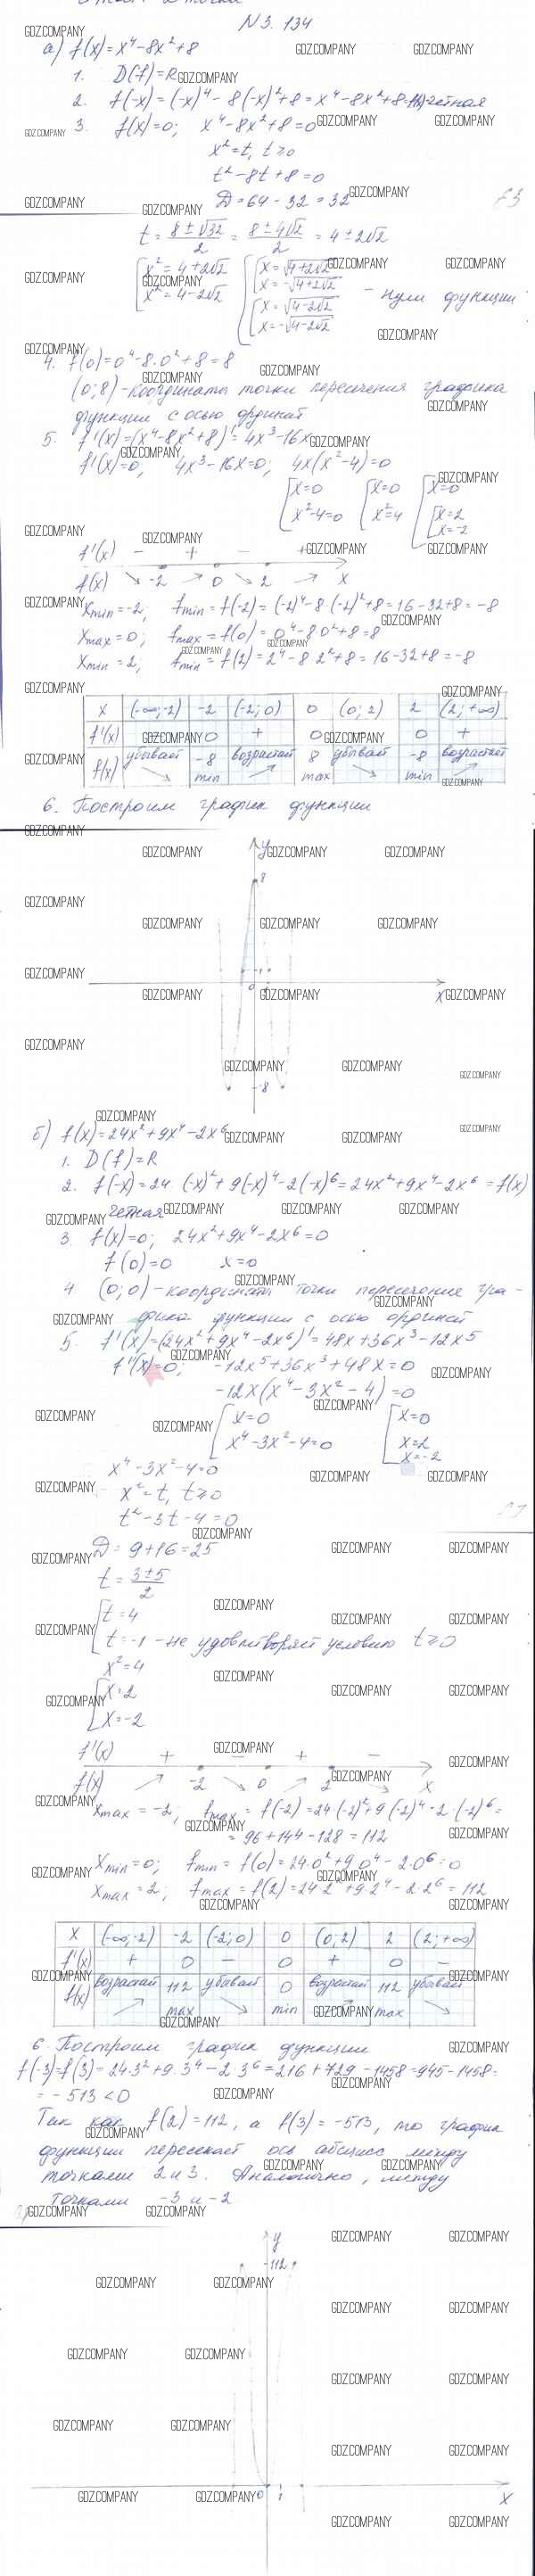 N 3. 134
а) f(x)=x⁴-8x²+8
1. D(f)=R
2. f(-x)=(-x)⁴-8(-x)²+8=x⁴-8x²+8= четная
3. f(x)=0; x⁴-8x²+8=0
x²=t, t≥0
t²-8t+8=0
D=64-32=32
t= (8±√32)/2 = (8±4√2)/2 = 4±2√2
[x²=4+2√2 [x=√(4+2√2)
[x²=4-2√2 [x=-√(4+2√2) - нули функции
[x=√(4-2√2)
[x=-√(4-2√2)
4. f(0)=0⁴-8·0²+8=8
(0;8)-координаты точки пересечения графика
функции с осью ординат
5. f'(x)=(x⁴-8x²+8)'=4x³-16x
f'(x)=0, 4x³-16x=0; 4x(x²-4)=0
[x=0 [x=0 [x=0
[x²-4=0 [x²=4 [x=2
[x=-2
f'(x) - + - +
f(x) ↘ -2 ↗ 0 ↘ 2 ↗ x
xmin=-2, fmin=f(-2)=(-2)⁴-8·(-2)²+8=16-32+8=-8
xmax=0; fmax=f(0)=0⁴-8·0²+8=8
xmin=2, fmin=f(2)=2⁴-8·2²+8=16-32+8=-8
x (-∞;-2) -2 (-2;0) 0 (0;2) 2 (2;+∞)
f'(x) 0 + 0 0 +
f(x) убывает ↘ -8 min возрастает ↗ 8 max убывает ↘ -8 min возрастает ↗
6. Построим график функции
y
8
1
0
x
-8
б) f(x)=24x²+9x⁴-2x⁶
1. D(f)=R
2. f(-x)=24·(-x)²+9(-x)⁴-2(-x)⁶=24x²+9x⁴-2x⁶=f(x)
четная
3. f(x)=0; 24x²+9x⁴-2x⁶=0
f(0)=0 x=0
4. (0;0)-координаты точки пересечение гра-
фика функции с осью ординат
5. f'(x)=(24x²+9x⁴-2x⁶)'=48x+36x³-12x⁵
f'(x)=0; -12x⁵+36x³+48x=0
-12x(x⁴-3x²-4)=0
[x=0 [x=0
[x⁴-3x²-4=0 [x=2
[x=-2
x⁴-3x²-4=0
x²=t, t≥0
t²-3t-4=0
D=9+16=25
t=(3±5)/2
[t=4
[t=-1 - не удовлетворяет условию t≥0
x²=4
[x=2
[x=-2
f'(x) + - + -
f(x) ↗ -2 ↘ 0 ↗ 2 ↘ x
xmax=-2; fmax=f(-2)=24·(-2)²+9(-2)⁴-2·(-2)⁶=
=96+144-128=112
xmin=0; fmin=f(0)=24·0²+9·0⁴-2·0⁶=0
xmax=2; fmax=f(2)=24·2²+9·2⁴-2·2⁶=112
x (-∞;-2) -2 (-2;0) 0 (0;2) 2 (2;+∞)
f'(x) + 0 - 0 + 0 -
f(x) возрастает ↗ 112 max убывает ↘ 0 min возрастает ↗ 112 max убывает ↘
6. Построим график функции
f(-3)=f(3)=24·3²+9·3⁴-2·3⁶=216+729-1458=945-1458=
=-513<0
Так как f(2)=112, а f(3)=-513, то график
функции пересекает ось абсцисс между
точками 2 и 3. Аналогично, между
точками -3 и -2
y
112
0 1
x
GDZ.COMPANY